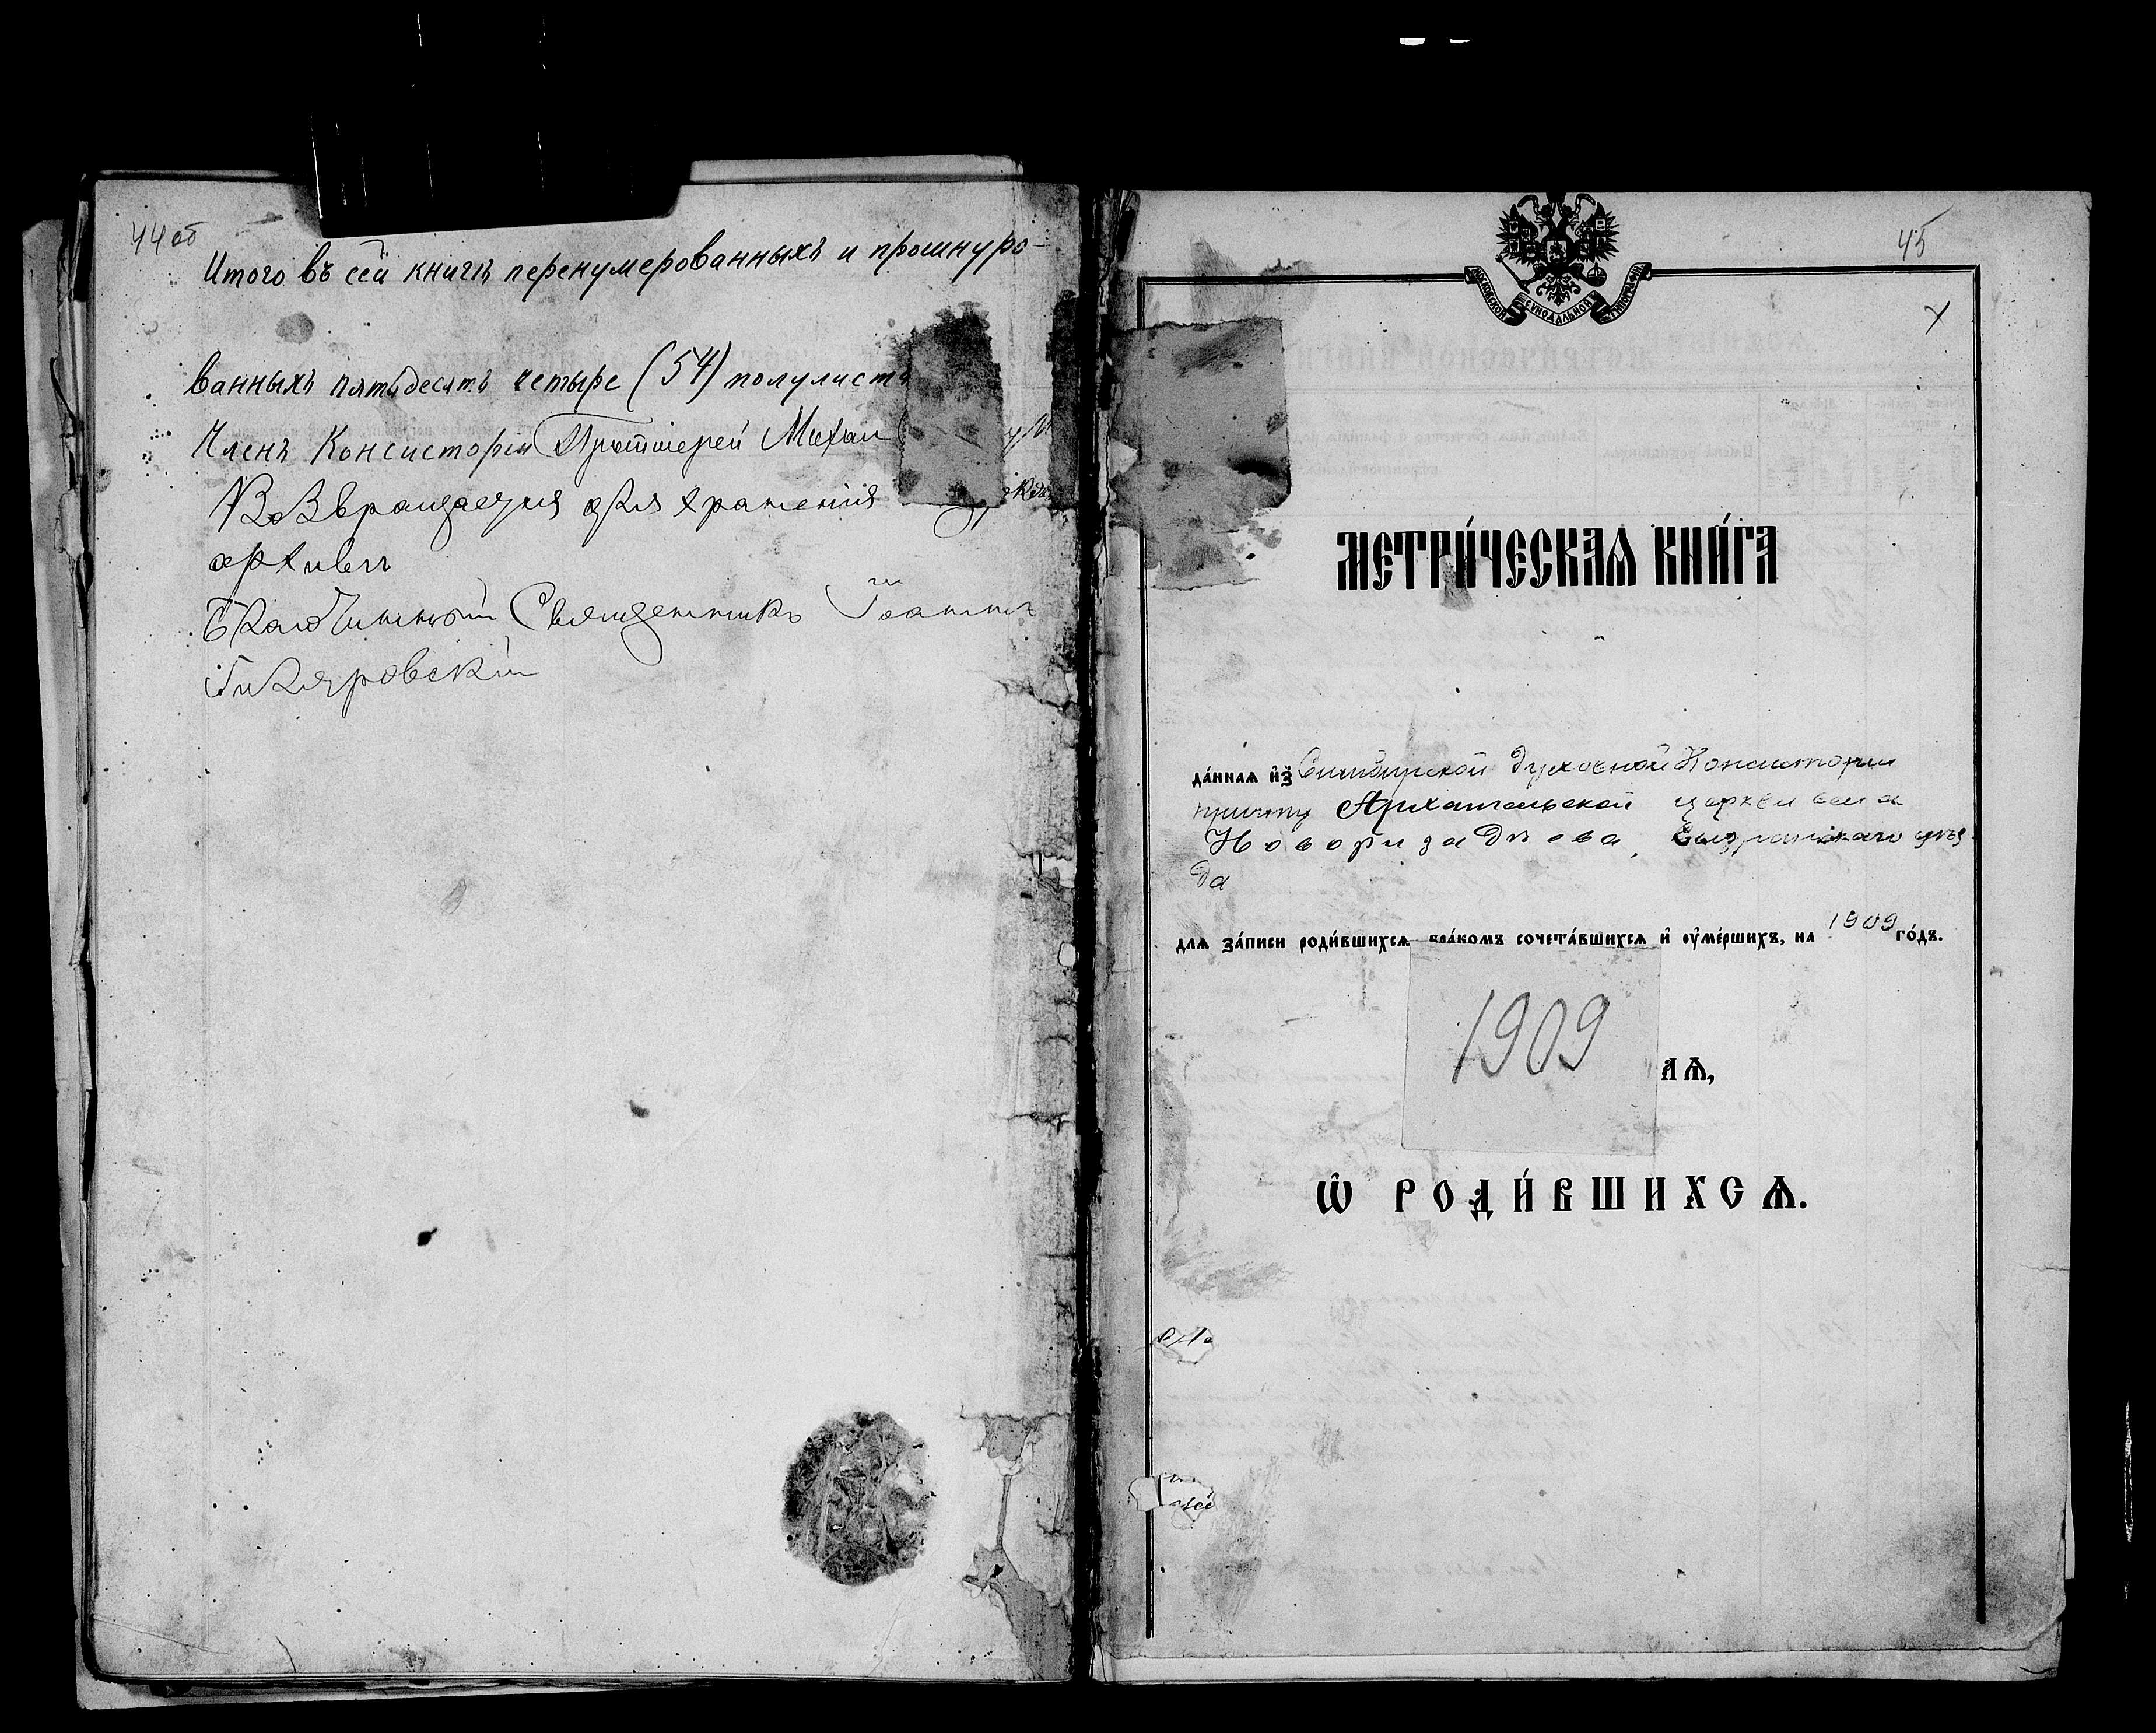 44 об
Итого въ сей книгѣ перенумерованныхъ и прошнуро-
ванныхъ пятьдесятъ четыре (54) полулист
Членъ Консисторіи Протоіерей Михаи
Возвращается для храненія
архивѣ
Благочинный Священникъ Іоаннъ
Гиляровскій
45
МОСКОВСКОЙ СѴНОДАЛЬНОЙ ТИПОГРАФІИ
х
МЕТРИ́ЧЕСКАѦ КНИ́ГА
да́ннаѧ и҆з̾ Симбирской Духовной Консисторіи
причту Архангельской церкви села
Новоризадѣева, Сызранскаго уѣз-
да
для за́писи роди́вшихсѧ бра́комъ сочета́вшихсѧ и҆ ᲂу҆ме́ршихъ, на 1909 го́дъ.
1909
аѧ,
Ѽ РОДИ́ВШИХСѦ.